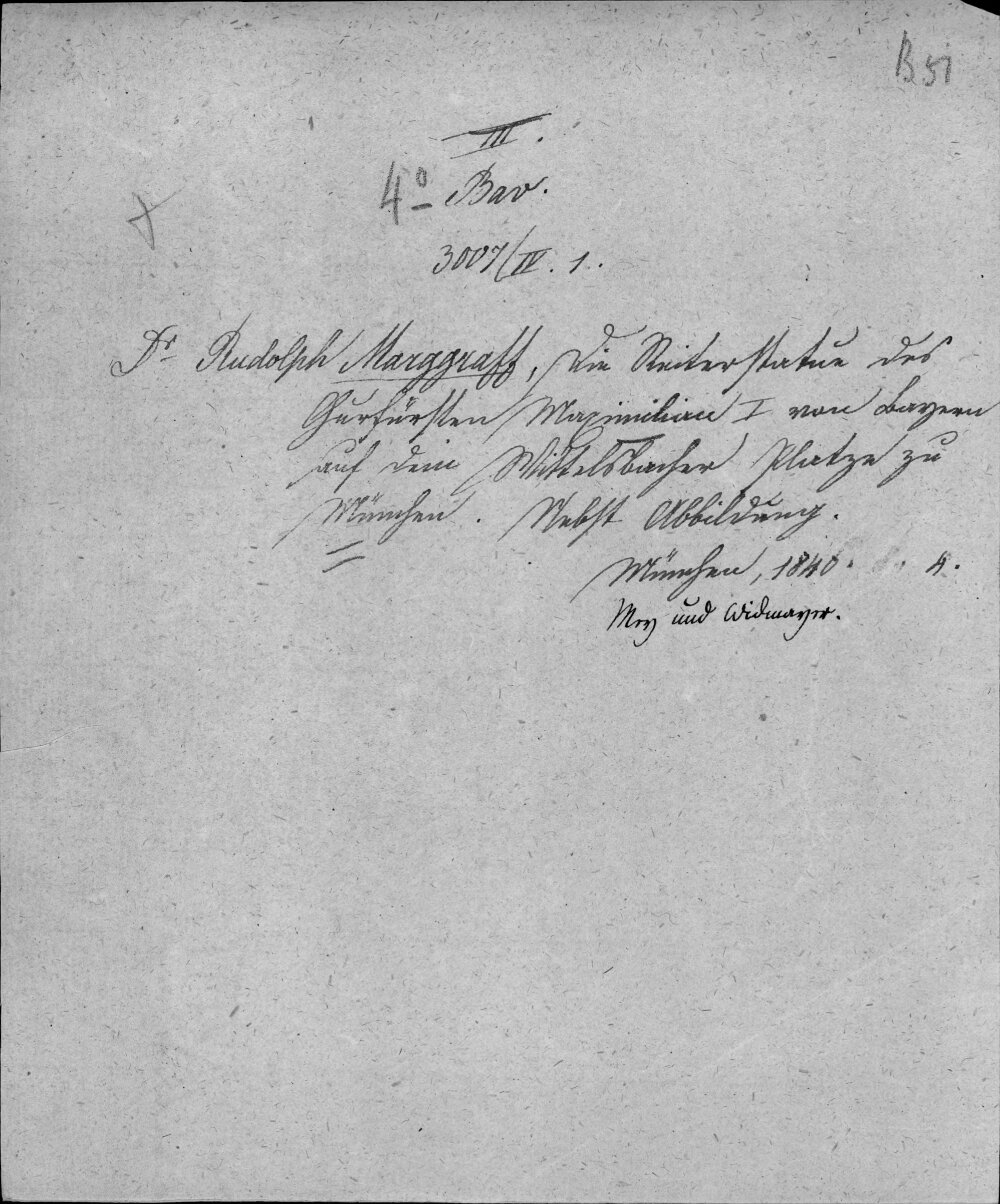 B 51
III.
4o Bav.
3007/IV. 1..
Dr Rudolph Marggraff, Die Reiterstatue des
Churfürsten Maximilian I von Bayern
auf dem Wittelsbacher Platze zu
München. Nebst Abbildung.
München, 1840. . 4.
Mey und Widmayer.